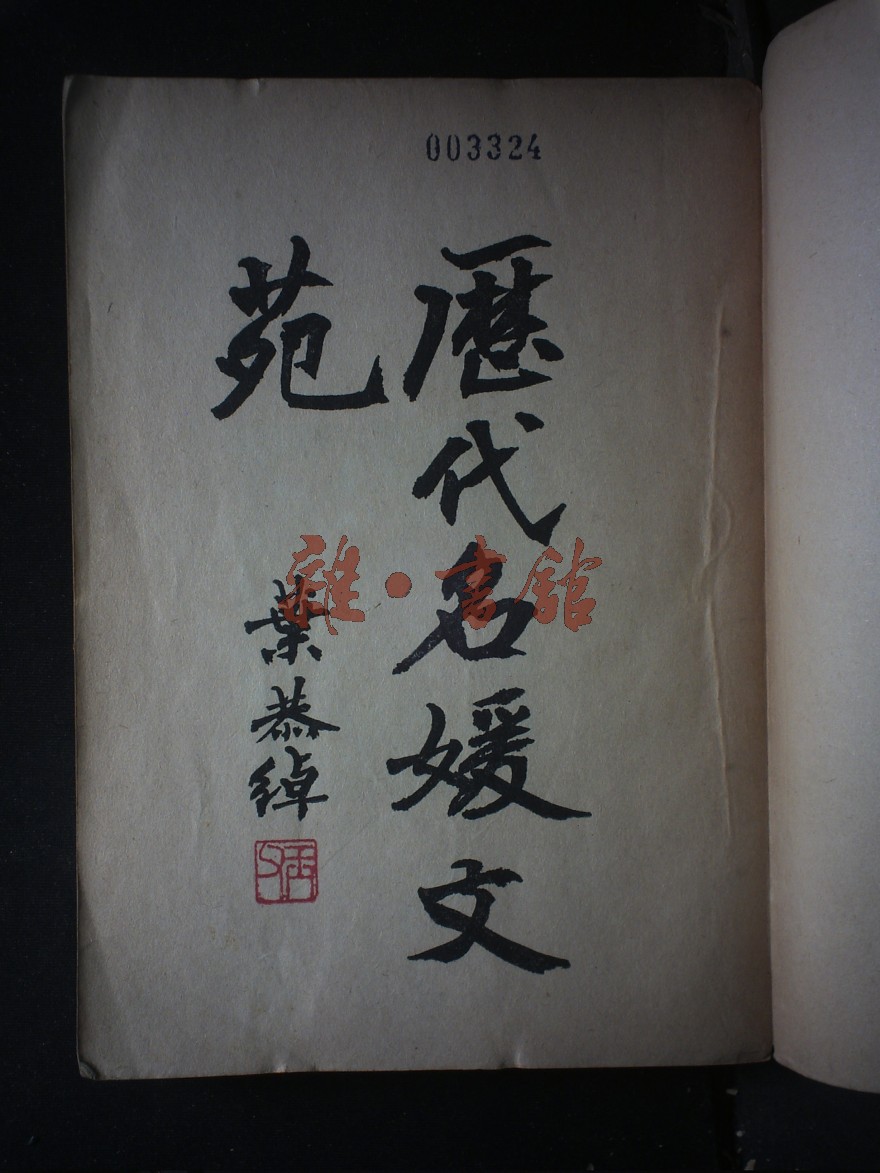 003324
歷代名媛文
苑
葉恭綽
雜·書館